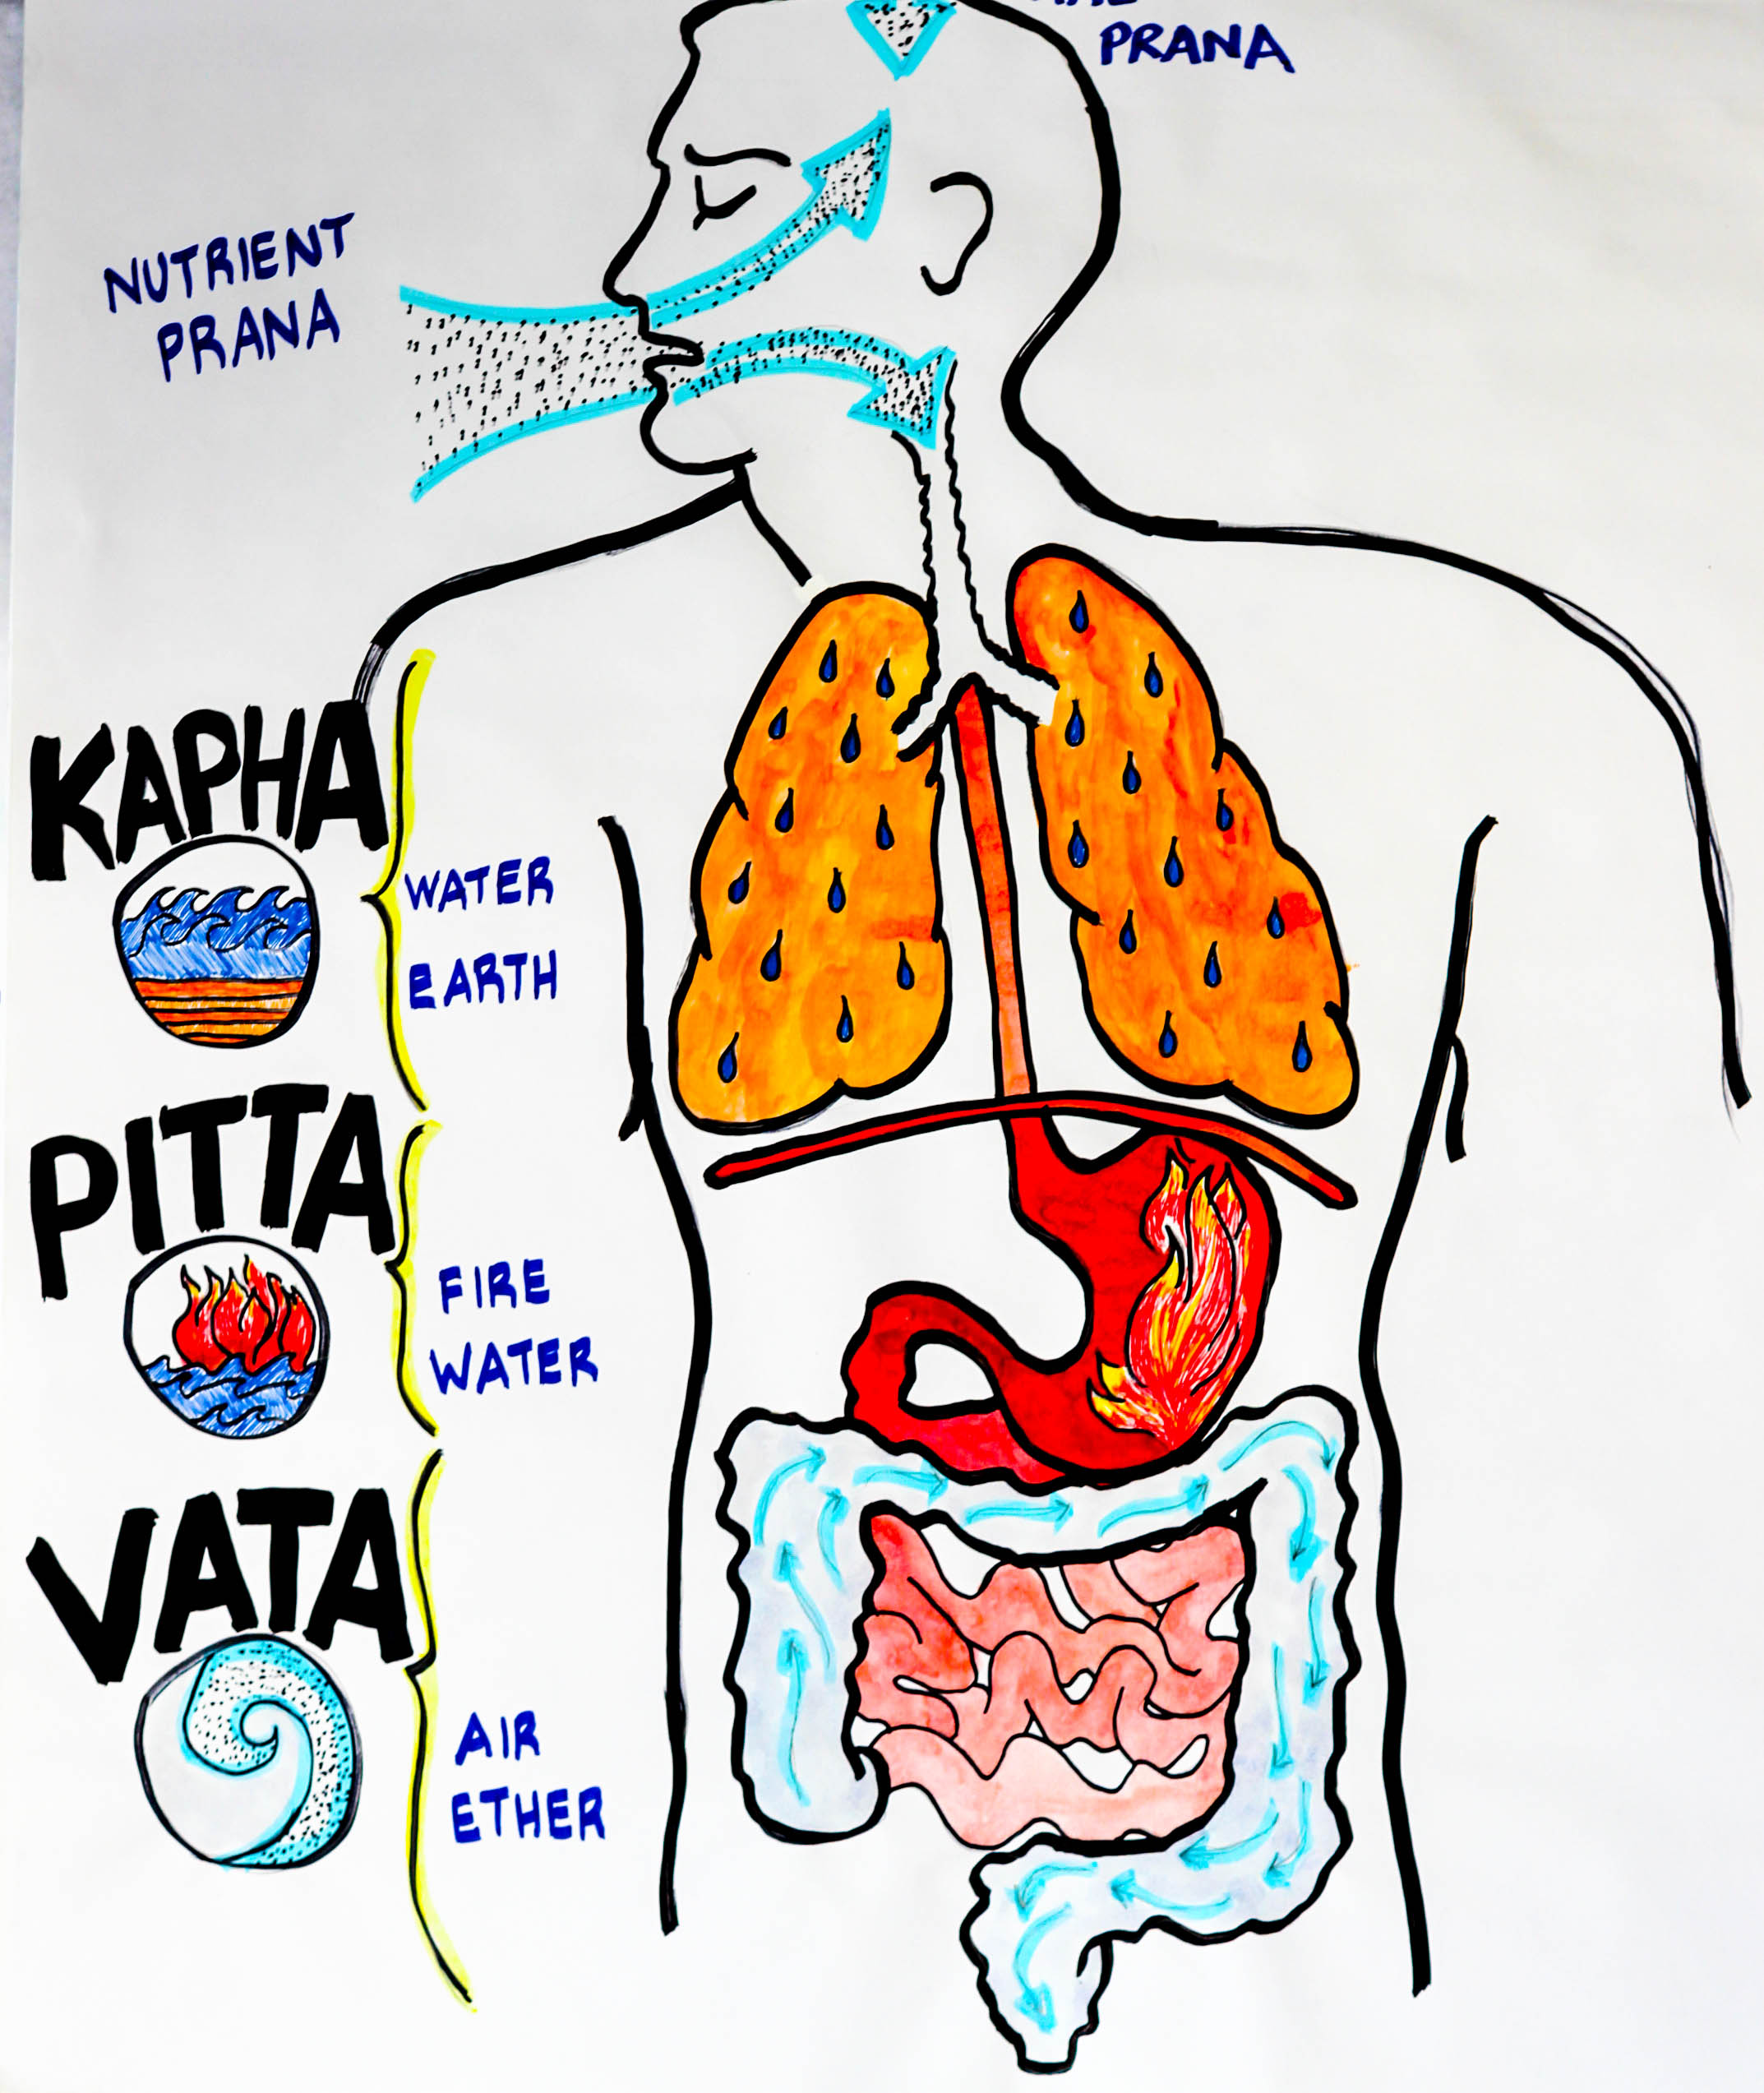 PRANA
NUTRIENT
PRANA
KAPHA
WATER
EARTH
PITTA
FIRE
WATER
VATA
AIR
ETHER